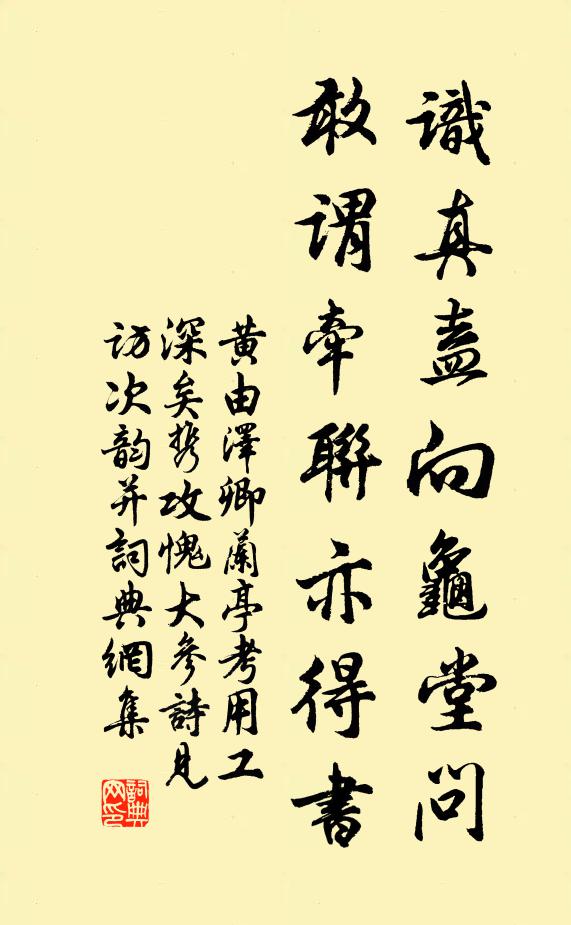 識真盍向龜堂問
敢謂牽聯亦得書
黄由澤卿蘭亭考用工
深矣携攻愧大參詩見
訪次韵并詞典網集
詞典網印